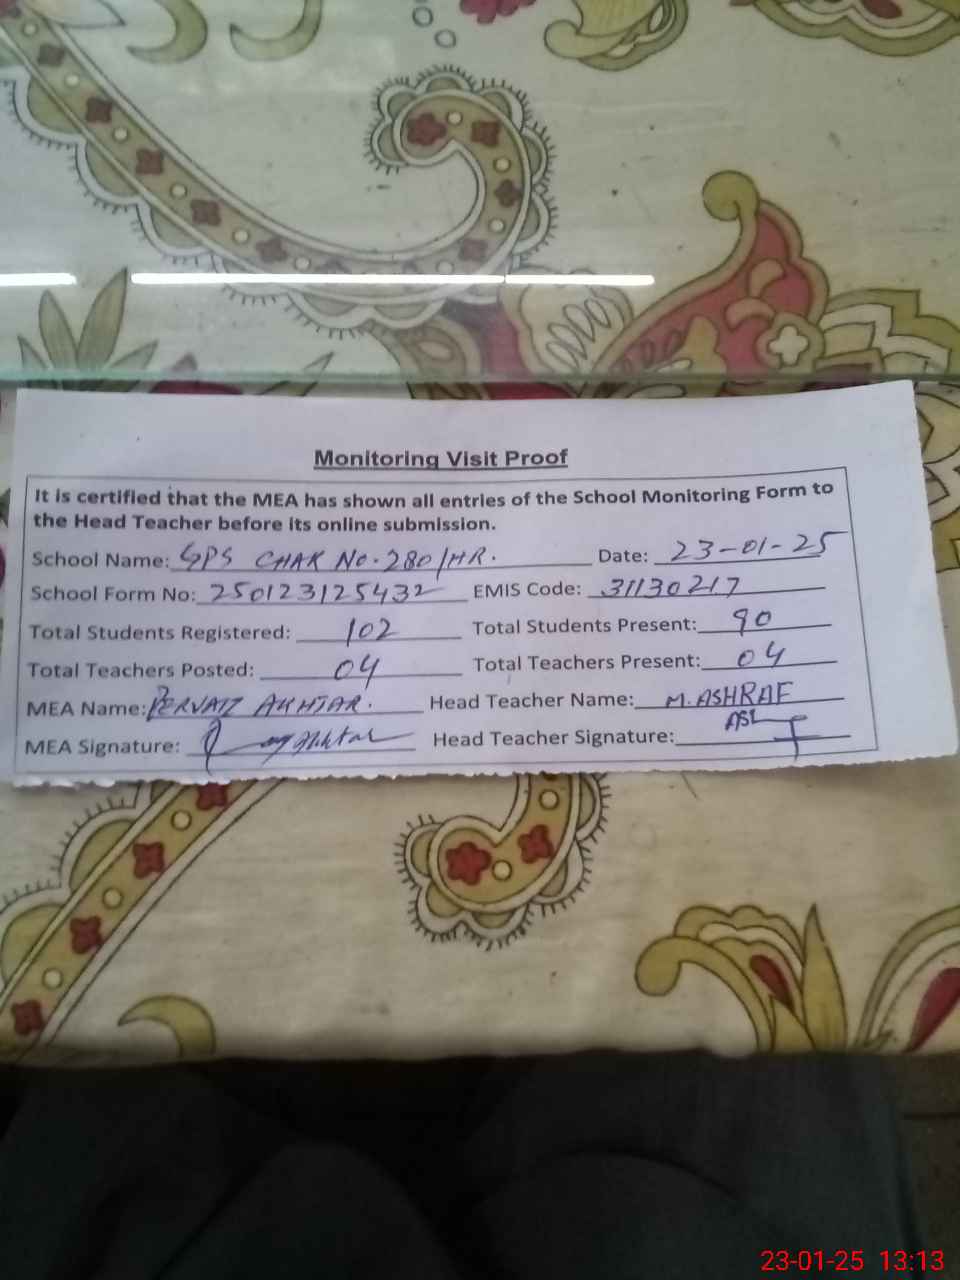 Monitoring Visit Proof
It is certified that the MEA has shown all entries of the School Monitoring Form to
the Head Teacher before its online submission.
School Name: GPS CHAK No. 280/HR. Date: 23-01-25
School Form No: 250123125432 EMIS Code: 31130217
Total Students Registered: 102 Total Students Present: 90
Total Teachers Posted: 04 Total Teachers Present: 04
MEA Name: PERVAIZ AKHTAR. Head Teacher Name: M. ASHRAF
MEA Signature: Head Teacher Signature:
23-01-25 13:13